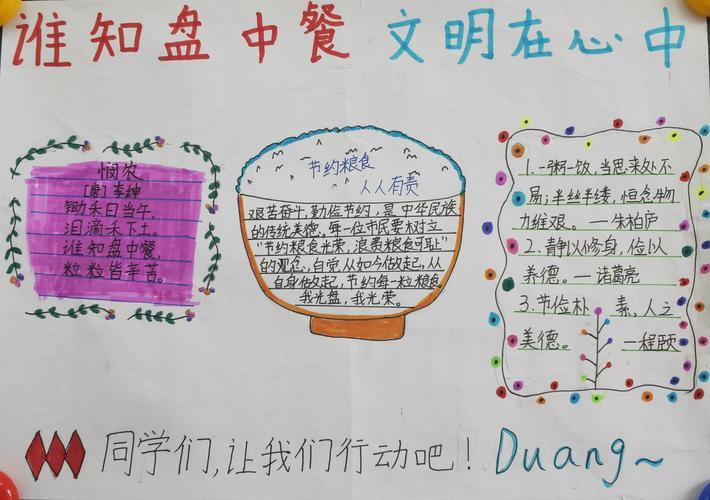 谁知盘中餐 文明在心中
悯农
[唐]李绅
锄禾日当午,
泪滴禾下土。
谁知盘中餐,
粒粒皆辛苦。
节约粮食
人人有责
艰苦奋斗,勤俭节约,是中华民族
的传统美德。每一位市民要树立
“节约粮食光荣,浪费粮食可耻”
的观念,自觉从如今做起,从
自身做起,节约每一粒粮食
我光盘,我光荣。
1.一粥一饭,当思来处不
易;半丝半缕,恒念物
力维艰。—朱柏庐
2、静以修身,俭以
养德。—诸葛亮
3.节俭朴素,人之
美德。—程颐
同学们,让我们行动吧!Duang~